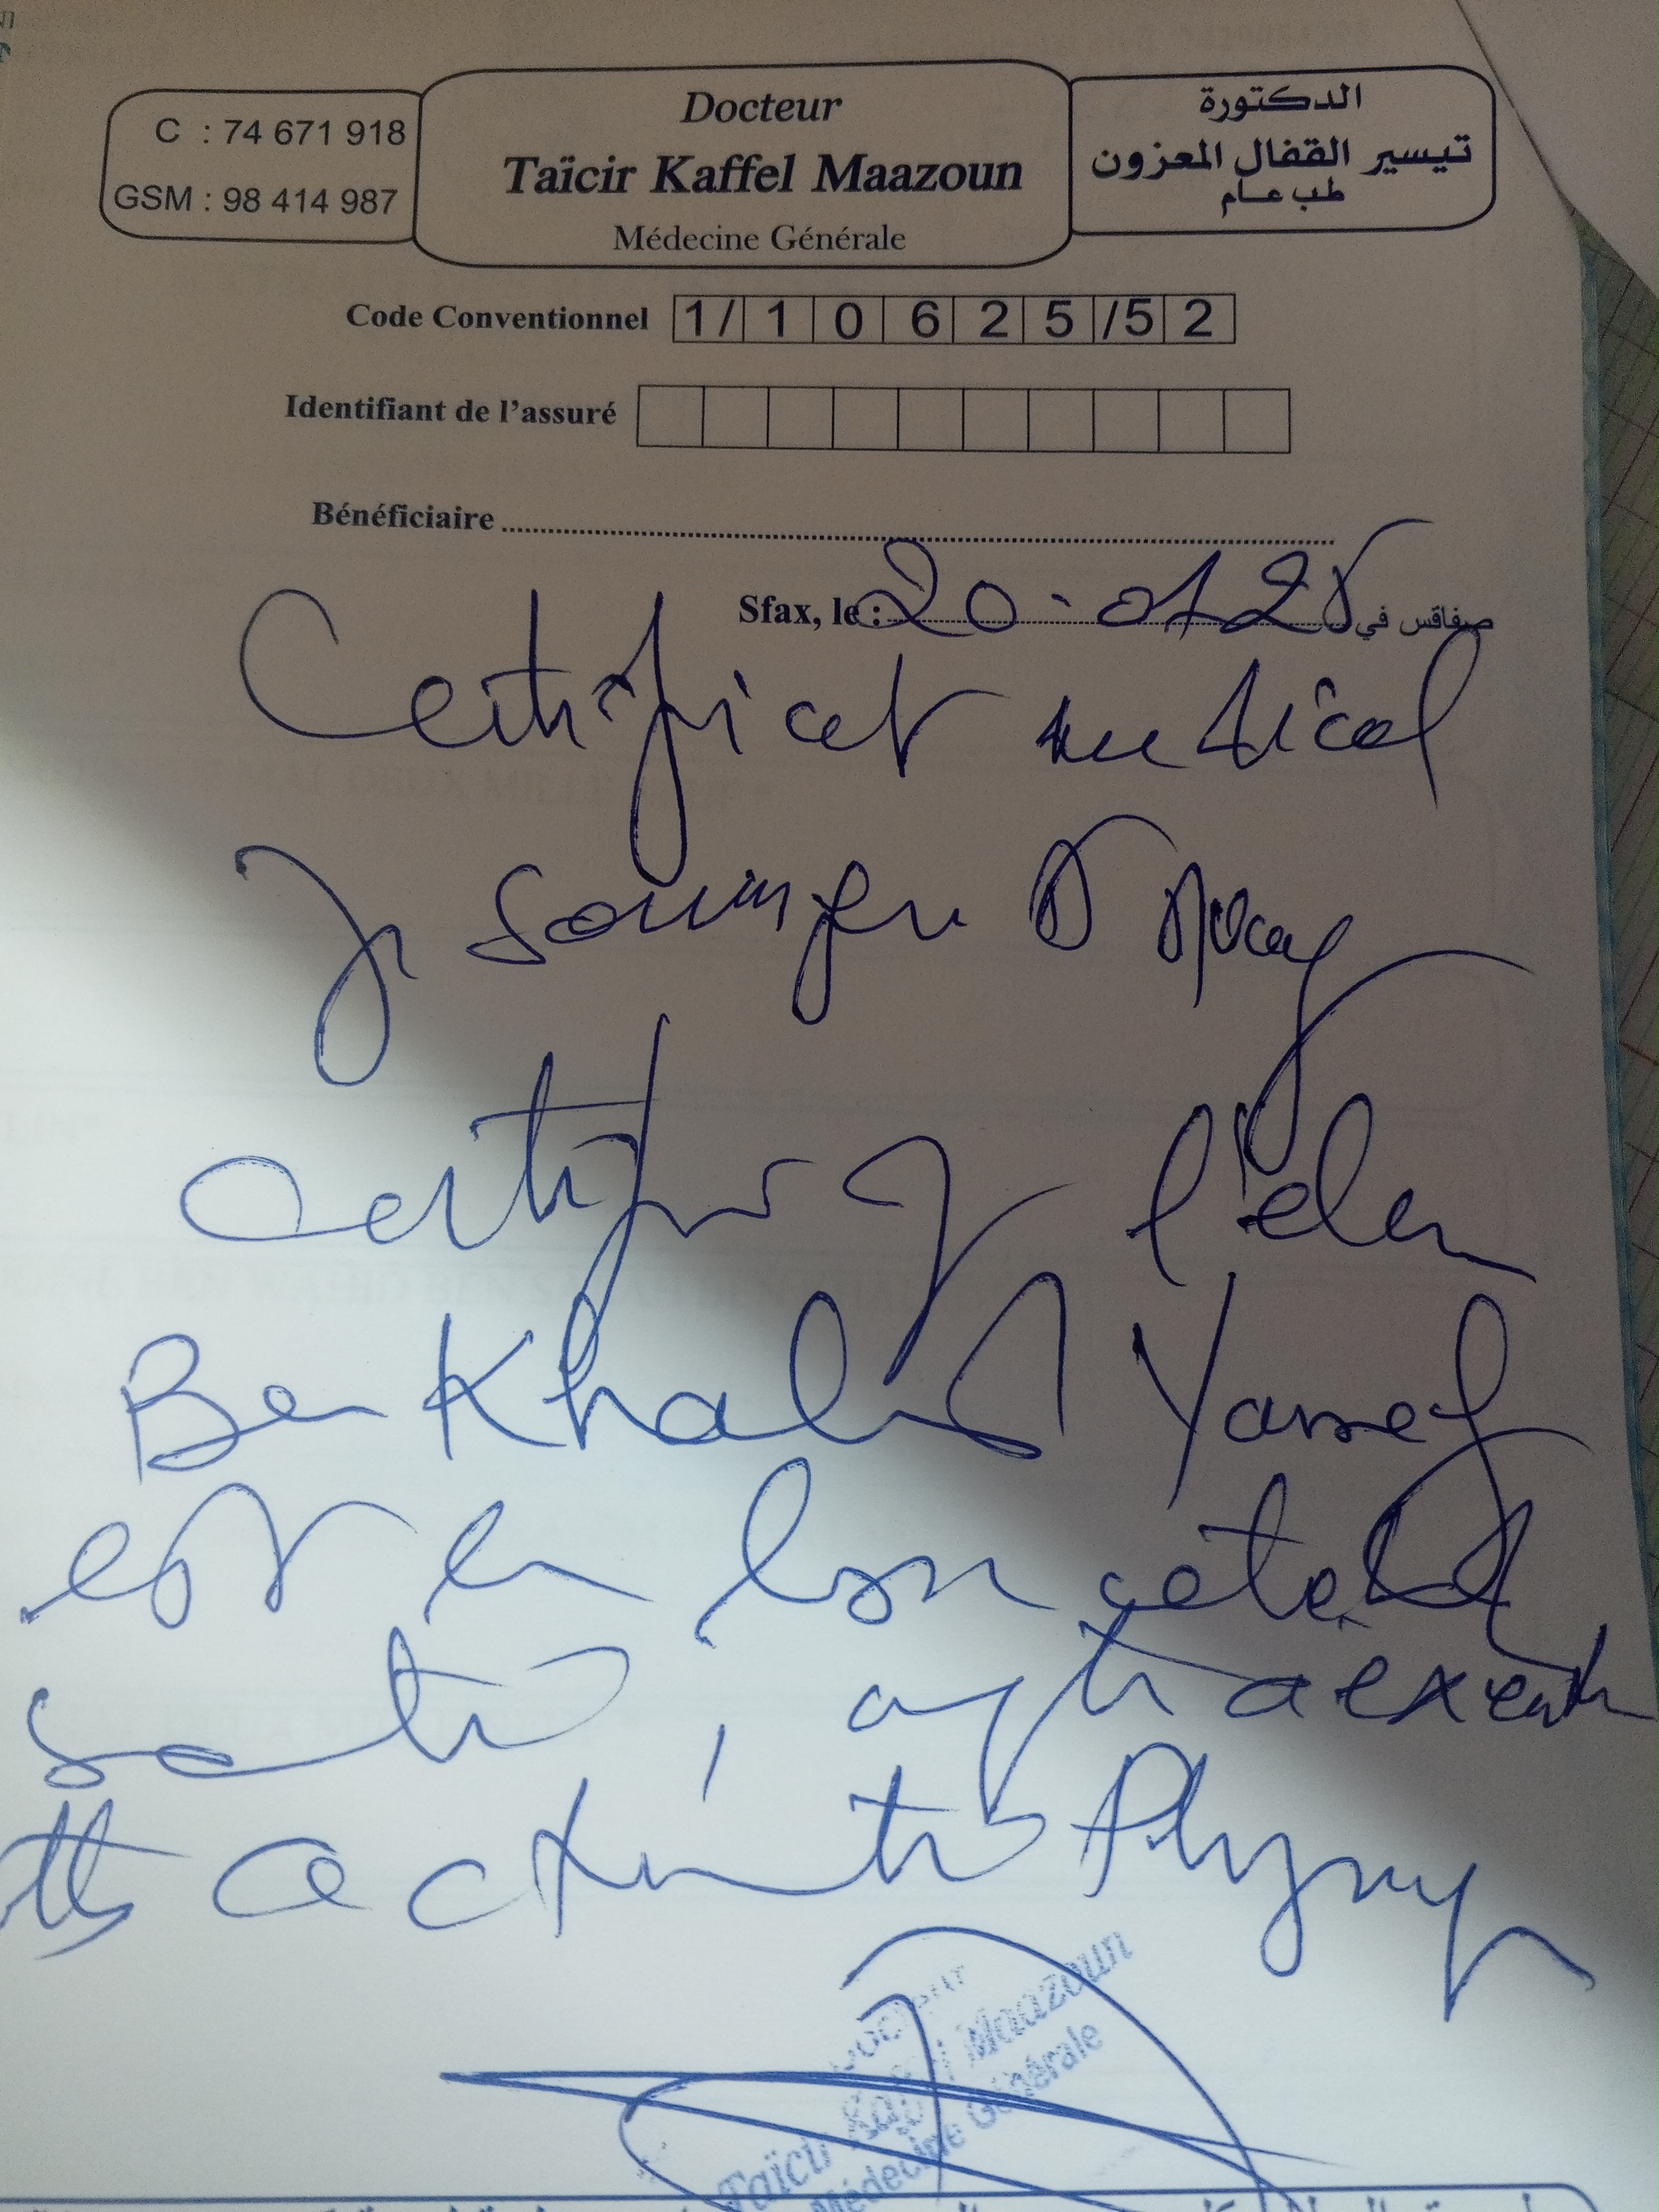 C : 74 671 918
GSM : 98 414 987
Docteur
Taïcir Kaffel Maazoun
Médecine Générale
الدكتورة
تيسير القفال المعزون
طب عام
Code Conventionnel 1/ 1 0 6 2 5 /5 2
Identifiant de l'assuré
Bénéficiaire
Sfax, le : 20-01-25 صفاقس في
Certificat medical
Je soussigne Dr
certifie q l'elev
Ben Khalid Yassef
est en bon etat de
santé, apt a exercer
tte activité Physiq
Docteur
Taïcir Kaffel Maazoun
Médecine Générale